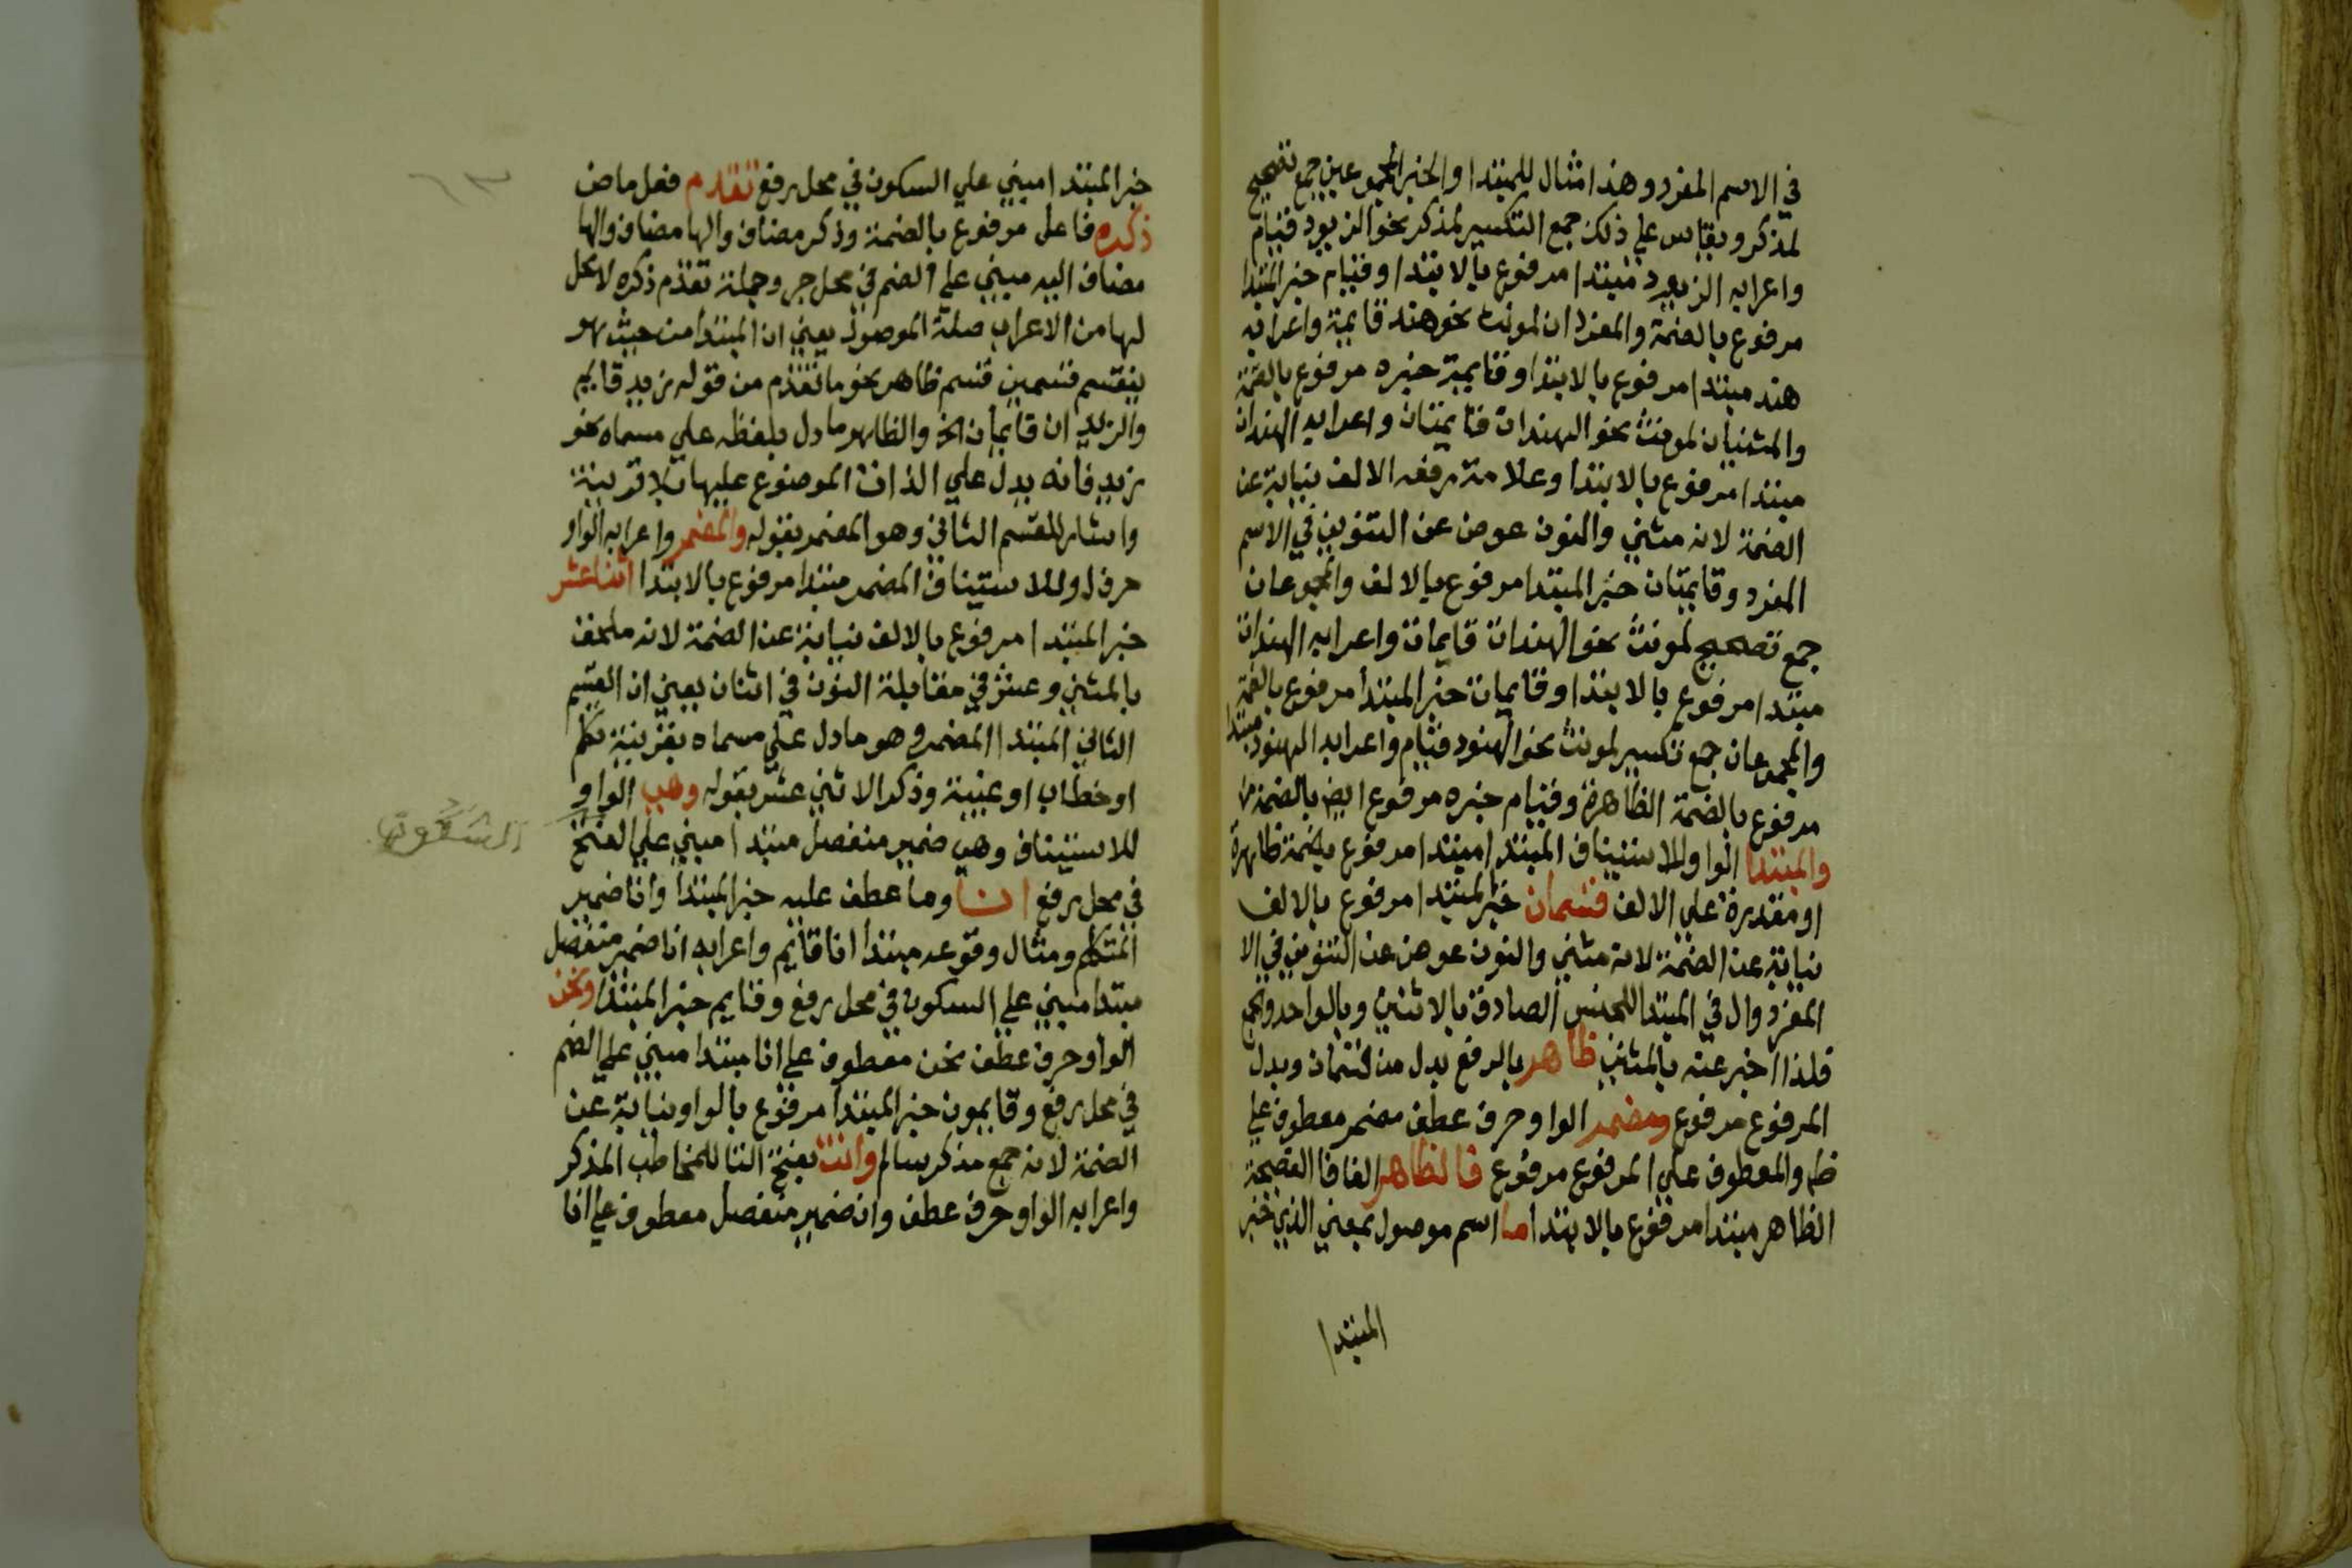 في الاسم المفرد وهذا مثال للمبتدا والخبر المجموعين جمع تصحيح
لمذكر ويقاس علي ذلك جمع التكسير لمذكر نحو الزيود قيام
واعرابه الزيود مبتدا مرفوع بالابتدا وقيام خبر المبتدا
مرفوع بالضمة والمفردان لمونث نحو هند قايمة واعرابه
هند مبتدا مرفوع بالابتدا وقايمة خبره مرفوع بالضمة
والمثنيان لمونث نحو الهندان قايمتان واعرابه الهندان
مبتدا مرفوع بالابتدا وعلامة رفعه الالف نيابة عن
الضمة لانه مثني والنون عوض عن التنوين في الاسم
المفرد وقايمتان خبر المبتدا مرفوع بالالف والمجموعان
جمع تصحيح لمونث نحو الهندات قايمات واعرابه الهندات
مبتدا مرفوع بالابتدا وقايمات خبر المبتدا مرفوع بالضمة
والمجموعان جمع تكسير لمونث نحو الهنود قيام واعرابه الهنود مبتدا
مرفوع بالضمة الظاهرة وقيام خبره مرفوع ايض بالضمة
والمبتدا الواو للاستيناف المبتدا مبتدا مرفوع بضمة ظاهرة
او مقدرة علي الالف قسمان خبر المبتدا مرفوع بالالف
نيابة عن الضمة لانه مثني والنون عوض عن التنوين في الا
المفرد وال في المبتدا للجنس الصادق بالاثنين وبالواحد والجمع
فلذا اخبر عنه بالمثني ظاهر بالرفع بدل من قسمان وبدل
المرفوع مرفوع ومضمر الواو حرف عطف مضمر معطوف علي
ظ والمعطوف علي المرفوع مرفوع فالظاهر الفا فا الفصيحة
الظاهر مبتدا مرفوع بالابتدا ما اسم موصول بمعني الذي خبر
المبتدا
خبر المبتدا مبني علي السكون في محل رفع تقدم فعل ماض
ذكره فاعل مرفوع بالضمة وذكر مضاف والها مضاف والها
مضاف اليه مبني علي الضم في محل جر وجملة تقدم ذكره لا محل
لها من الاعراب صلة الموصول يعني ان المبتدا من حيث هو
ينقسم قسمين قسم ظاهر نحو ما تقدم من قوله زيد قايم
والزيدان قايمان الخ والظاهر ما دل بلفظه علي مسماه نحو
زيد فانه يدل علي الذات الموضوع عليها بلا قرينة
واشار للقسم الثاني وهو المضمر بقوله والمضمر واعرابه الواو
حرف اول للاستيناف المضمر مبتدا مرفوع بالابتدا اثنا عشر
خبر المبتدا مرفوع بالالف نيابة عن الضمة لانه ملحق
بالمثني وعشر في مقابلة النون في اثنان يعني ان القسم
الثاني المبتدا المضمر وهو ما دل علي مسماه بقرينة تكلم
او خطاب او غيبة وذكر الاثني عشر بقوله وهي الواو
للاستيناف وهي ضمير منفصل مبتدا مبني علي الفتح
في محل رفع انا وما عطف عليه خبر المبتدا وانا ضمير
المتكلم ومثال وقوعه مبتدا انا قايم واعرابه انا ضمير منفصل
مبتدا مبني علي السكون في محل رفع وقايم خبر المبتدا ونحن
الواو حرف عطف نحن معطوف علي انا مبتدا مبني علي الضم
في محل رفع وقايمون خبر المبتدا مرفوع بالواو نيابة عن
الضمة لانه جمع مذكر سالم وانت بفتح التا للمخاطب المذكر
واعرابه الواو حرف عطف وان ضمير منفصل معطوف علي انا